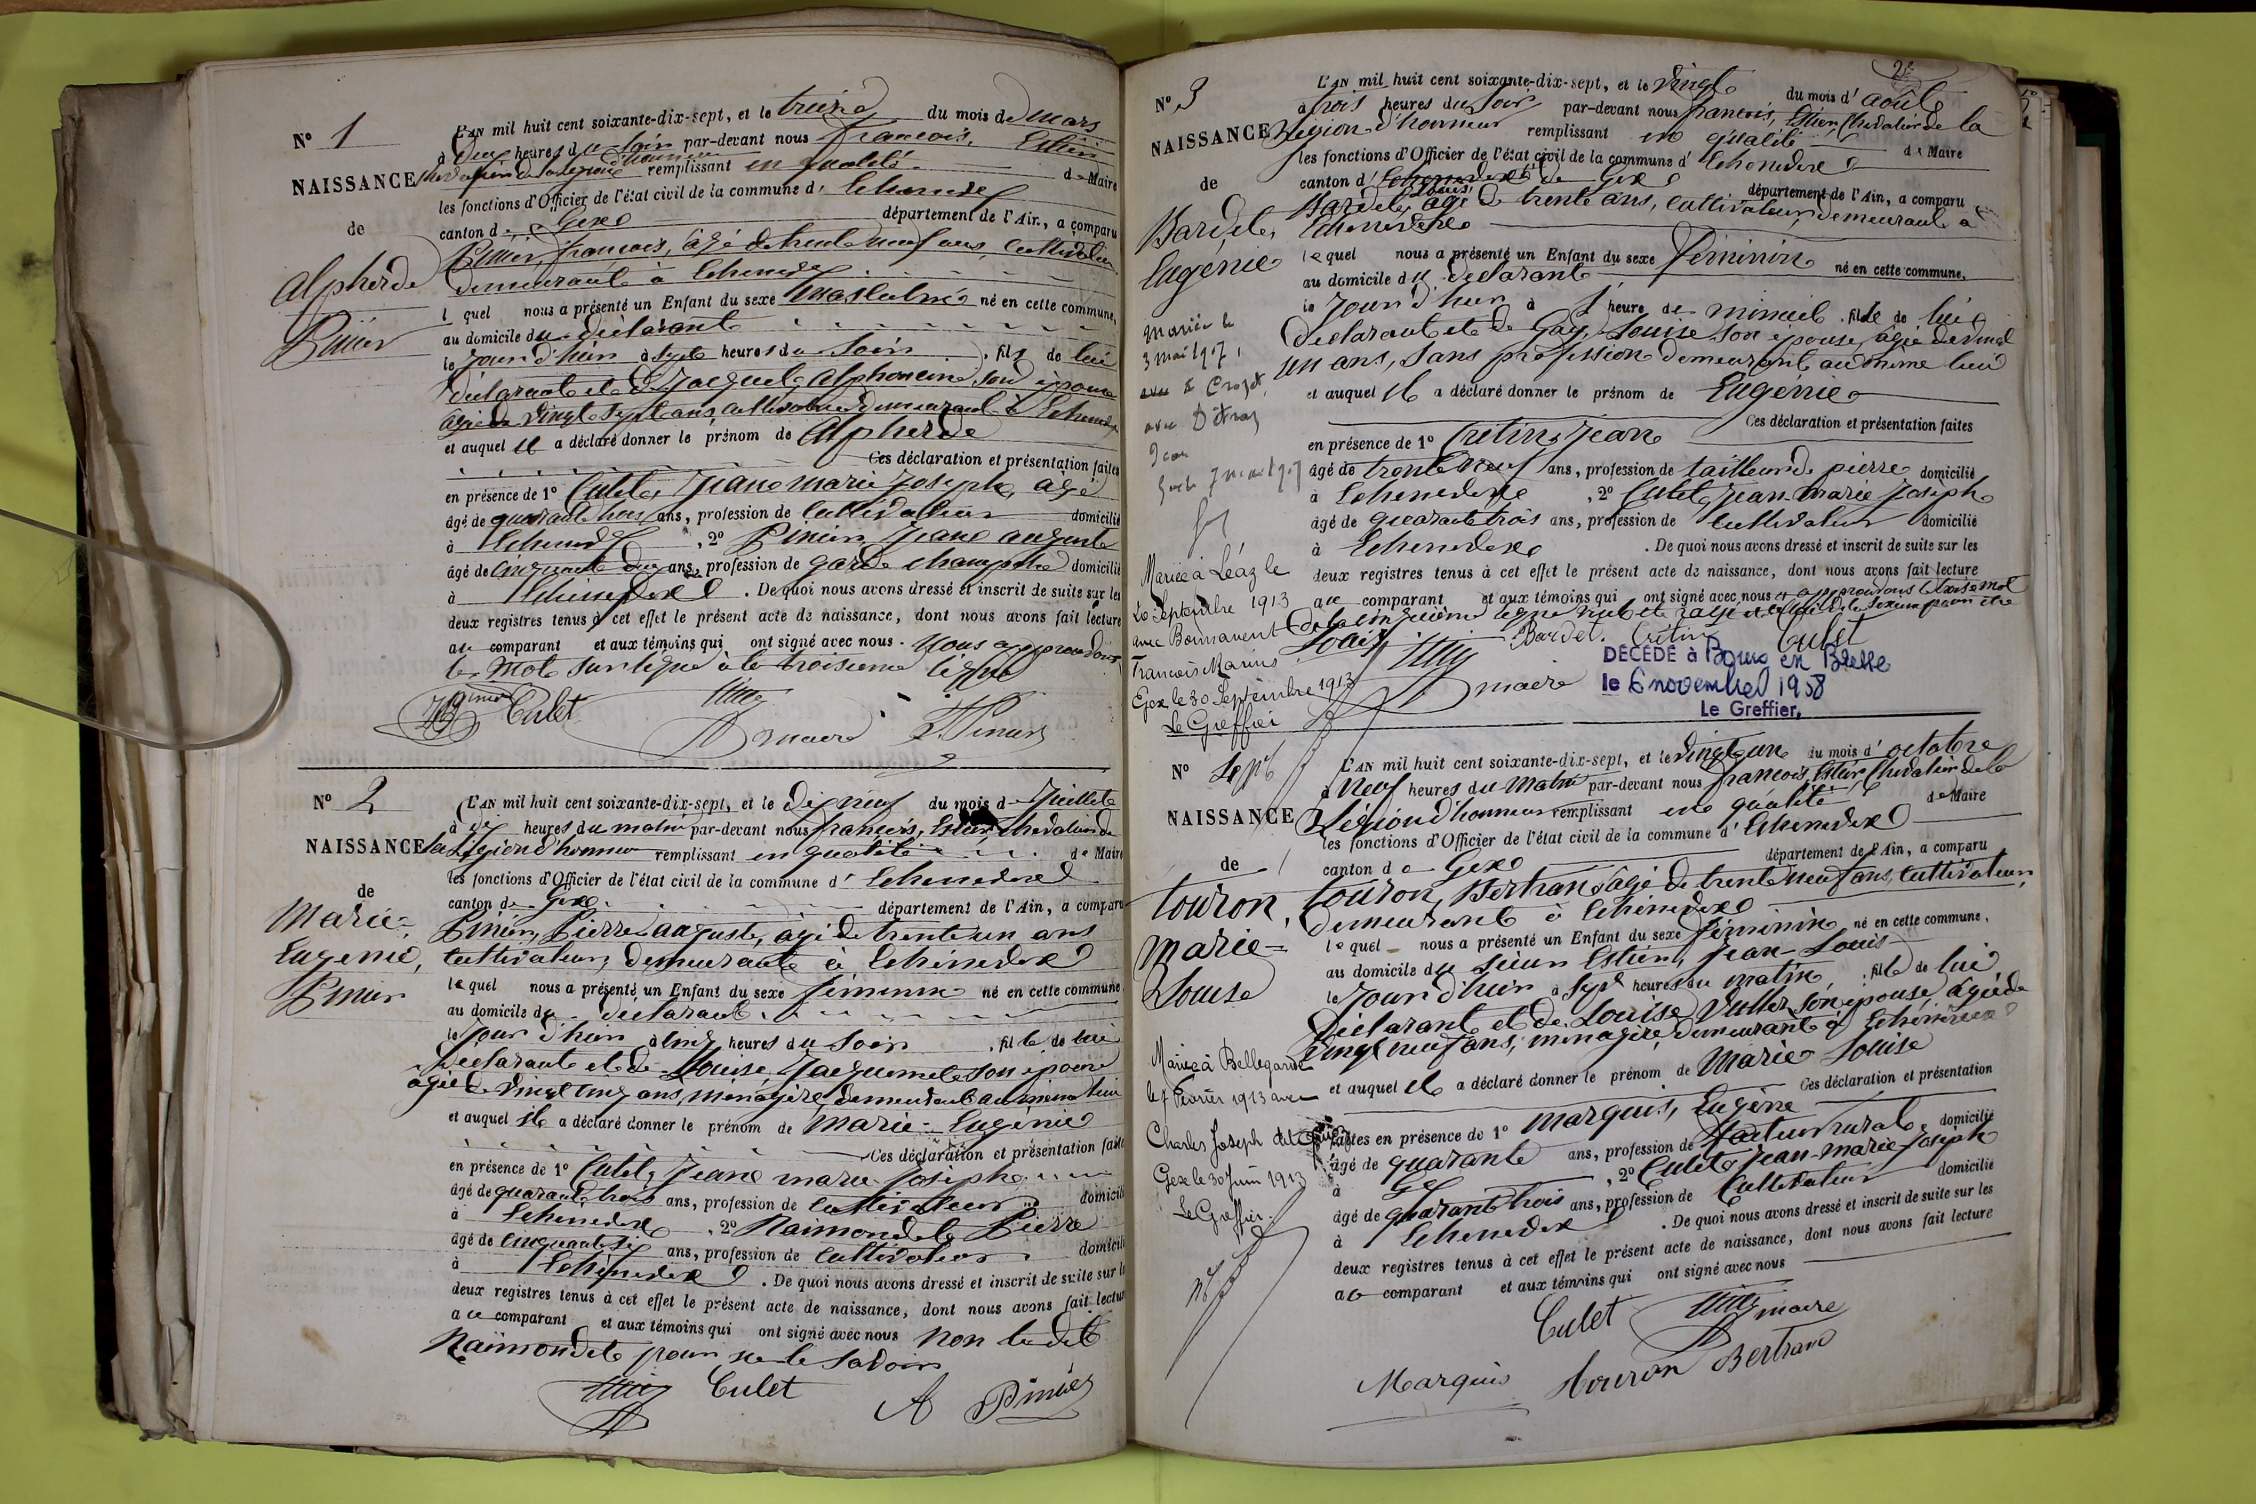 N° 1
NAISSANCE
de
Alpherde
Pinier
L'AN mil huit cent soixante-dix-sept, et le treize du mois de Mars
à deux heures du soir par-devant nous françois, Estier
chevalier de la légion d'honneur remplissant en qualité de Maire
les fonctions d'Officier de l'état civil de la commune d' Echenevex
canton de Gex département de l'Ain, a comparu
Pinier, françois, âgé de trente neuf ans, cultivateur
demeurant à Echenevex
lequel nous a présenté un Enfant du sexe masculin né en cette commune,
au domicile du déclarant
le jour d'hier à sept heures du soir, fils de lui
déclarant et de Jacquet Alphonsine son épouse
âgée de vingt sept ans cultivatrice demeurant à Echenevex
et auquel il a déclaré donner le prénom de Alpherde
Ces déclaration et présentation faites
en présence de 1° Culet, Jean marie Joseph, âgé
âgé de quarante trois ans, profession de Cultivateur domicilié
à Echenevex, 2° Pinier Jean auguste
âgé de cinquante deux ans, profession de garde champêtre domicilié
à Echenevex. De quoi nous avons dressé et inscrit de suite sur les
deux registres tenus à cet effet le présent acte de naissance, dont nous avons fait lecture
au comparant et aux témoins qui ont signé avec nous. Nous approuvons
les mots sur ligne à la troisième ligne
Pinier Culet maire F. Pinier
N° 2
NAISSANCE
de
Marie-
Eugenie,
Pinier
L'AN mil huit cent soixante-dix-sept, et le dix neuf du mois de Juillet
à dix heures du matin par-devant nous françois, Estier, chevalier de
la Légion d'honneur remplissant en qualité de Maire
les fonctions d'Officier de l'état civil de la commune d' Echenevex
canton de Gex département de l'Ain, a comparu
Pinier, Pierre auguste, âgé de trente un ans
cultivateur, demeurant à Echenevex
lequel nous a présenté un Enfant du sexe féminin né en cette commune
au domicile du déclarant
le jour d'hier à cinq heures du soir, fille de lui
déclarant et de Louise, Jacquemet son épouse
âgée de vingt cinq ans, ménagère, demeurant au même lieu
et auquel il a déclaré donner le prénom de Marie-Eugénie
Ces déclaration et présentation faites
en présence de 1° Culet, Jean marie Joseph
âgé de quarante trois ans, profession de cultivateur domicilié
à Echenevex, 2° Raimondet Pierre
âgé de cinquante six ans, profession de cultivateur domicilié
à Echenevex. De quoi nous avons dressé et inscrit de suite sur les
deux registres tenus à cet effet le présent acte de naissance, dont nous avons fait lecture
au comparant et aux témoins qui ont signé avec nous non ledit
Raimondet pour ne le savoir
Culet A Pinier
2e
N° 3
NAISSANCE
de
Bardet,
Eugénie
Mariée le
3 mai 1907
avec
Mariée à Léaz le
20 Septembre 1913
avec Bonnavent
François Marius
Gex le 30 Septembre 1913
Le Greffier
L'AN mil huit cent soixante-dix-sept, et le vingt du mois d'août
à trois heures du soir par-devant nous françois, Estier, Chevalier de la
Légion d'honneur remplissant en qualité de Maire
les fonctions d'Officier de l'état civil de la commune d' Echenevex
canton d' Echenevex de Gex département de l'Ain, a comparu
Bardet, Louis âgé de trente ans, cultivateur, demeurant à
Echenevex
lequel nous a présenté un Enfant du sexe féminin né en cette commune,
au domicile du déclarant
le jour d'hier à 1 heure de minuit, fille de lui
déclarant et de Gay, Louise son épouse, âgée de vingt
un ans, sans profession demeurant au même lieu
et auquel il a déclaré donner le prénom de Eugénie
Ces déclaration et présentation faites
en présence de 1° Crétin, Jean
âgé de trente neuf ans, profession de tailleur de pierre domicilié
à Echenevex, 2° Culet, Jean-marie Joseph
âgé de quarante trois ans, profession de cultivateur domicilié
à Echenevex. De quoi nous avons dressé et inscrit de suite sur les
deux registres tenus à cet effet le présent acte de naissance, dont nous avons fait lecture
au comparant et aux témoins qui ont signé avec nous
Louis Bardet. Crétin Culet
maire
DÉCÉDÉ à Bourg en Bresse
le 6 novembre 1958
Le Greffier,
N° Sept
NAISSANCE
de
Touron,
Marie-
Louise
Mariée à Bellegarde
le 7 Février 1913 avec
Charles Joseph
Gex le 30 Juin 1913
Le Greffier.
L'AN mil huit cent soixante-dix-sept, et le vingt un du mois d'octobre
à neuf heures du matin par-devant nous françois, Estier Chevalier de la
Légion d'honneur remplissant en qualité de Maire
les fonctions d'Officier de l'état civil de la commune d' Echenevex
canton de Gex département de l'Ain, a comparu
Touron, Bertrand âgé de trente neuf ans, Cultivateur,
demeurant à Echenevex
lequel nous a présenté un Enfant du sexe féminin né en cette commune,
au domicile du sieur Estier, Jean-Louis
le jour d'hier à sept heures du matin, fille de lui
déclarant et de Louise son épouse, âgée de
vingt neuf ans, ménagère, demeurant à Echenevex
et auquel il a déclaré donner le prénom de Marie Louise
Ces déclaration et présentation
faites en présence de 1° Marquis, Eugène
âgé de quarante ans, profession de facteur rural, domicilié
à Gex, 2° Culet, Jean-marie Joseph
âgé de quarante trois ans, profession de Cultivateur domicilié
à Echenevex. De quoi nous avons dressé et inscrit de suite sur les
deux registres tenus à cet effet le présent acte de naissance, dont nous avons fait lecture
au comparant et aux témoins qui ont signé avec nous
Culet maire
Marquis Touron Bertrand